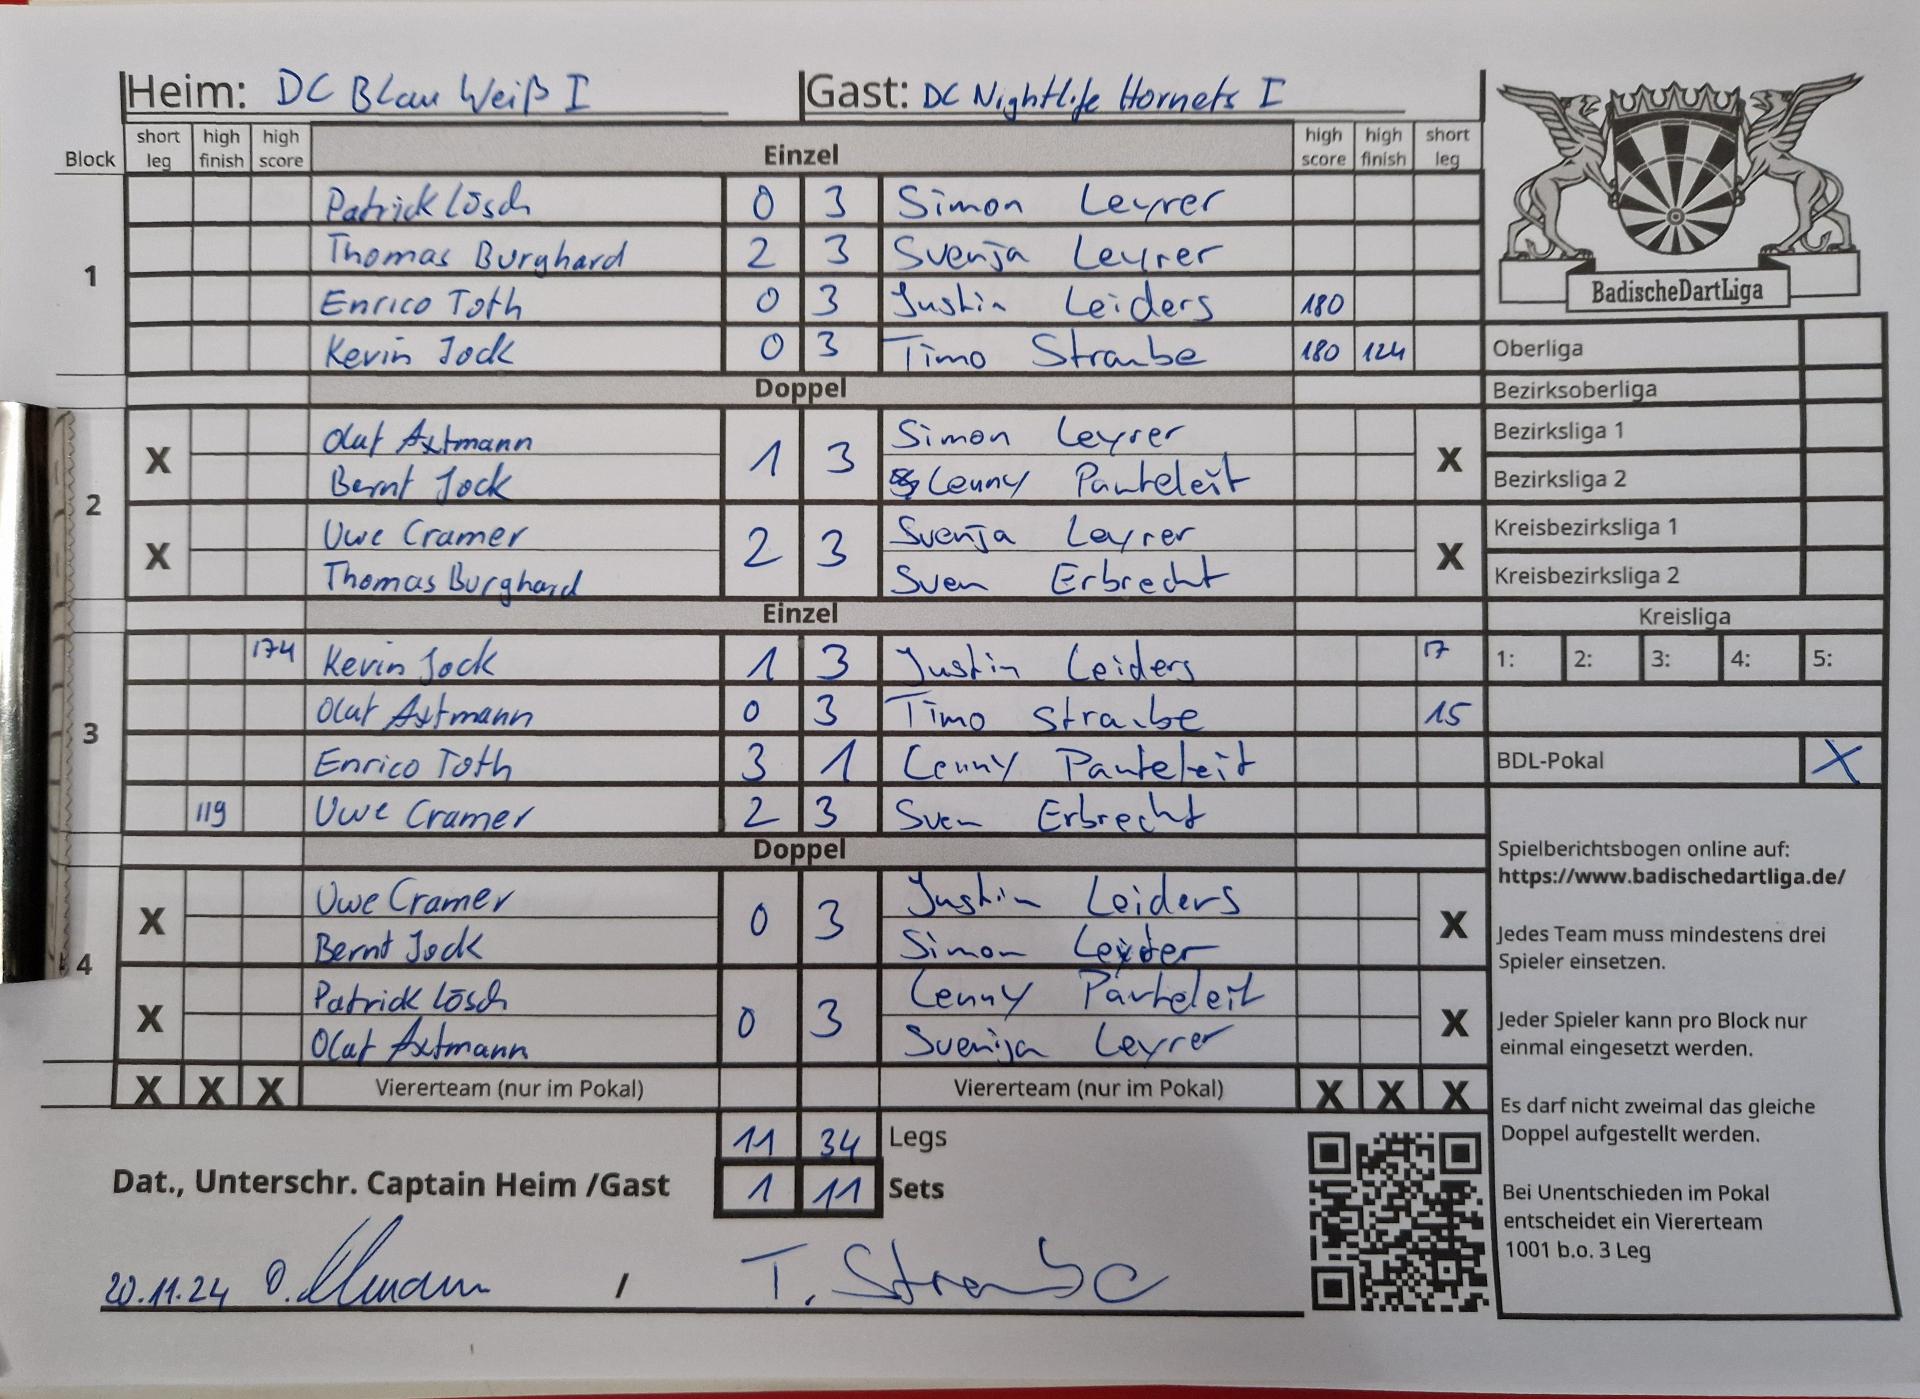 Heim: DC Blau Weiß I Gast: DC Nightlife Hornets I
Block short leg high finish high score Einzel high score high finish short leg
1
Patrick Lösch 0 3 Simon Leyrer
Thomas Burghard 2 3 Svenja Leyrer
Enrico Toth 0 3 Justin Leiders 180
Kevin Jock 0 3 Timo Straube 180 124
Doppel
2
X Olaf Axtmann 1 3 Simon Leyrer X
Bernt Jock Lenny Panteleit
X Uwe Cramer 2 3 Svenja Leyrer X
Thomas Burghard Sven Erbrecht
Einzel
3
174 Kevin Jock 1 3 Justin Leiders 17
Olaf Axtmann 0 3 Timo Straube 15
Enrico Toth 3 1 Lenny Panteleit
119 Uwe Cramer 2 3 Sven Erbrecht
Doppel
4
X Uwe Cramer 0 3 Justin Leiders X
Bernt Jock Simon
X Patrick Lösch 0 3 Lenny Panteleit X
Olaf Axtmann Svenija Leyrer
X X X Viererteam (nur im Pokal) Viererteam (nur im Pokal) X X X
11 34 Legs
Dat., Unterschr. Captain Heim /Gast 1 11 Sets
20.11.24 / T. Straube
BadischeDartLiga
Oberliga
Bezirksoberliga
Bezirksliga 1
Bezirksliga 2
Kreisbezirksliga 1
Kreisbezirksliga 2
Kreisliga
1: 2: 3: 4: 5:
BDL-Pokal X
Spielberichtsbogen online auf:
https://www.badischedartliga.de/
Jedes Team muss mindestens drei
Spieler einsetzen.
Jeder Spieler kann pro Block nur
einmal eingesetzt werden.
Es darf nicht zweimal das gleiche
Doppel aufgestellt werden.
Bei Unentschieden im Pokal
entscheidet ein Viererteam
1001 b.o. 3 Leg